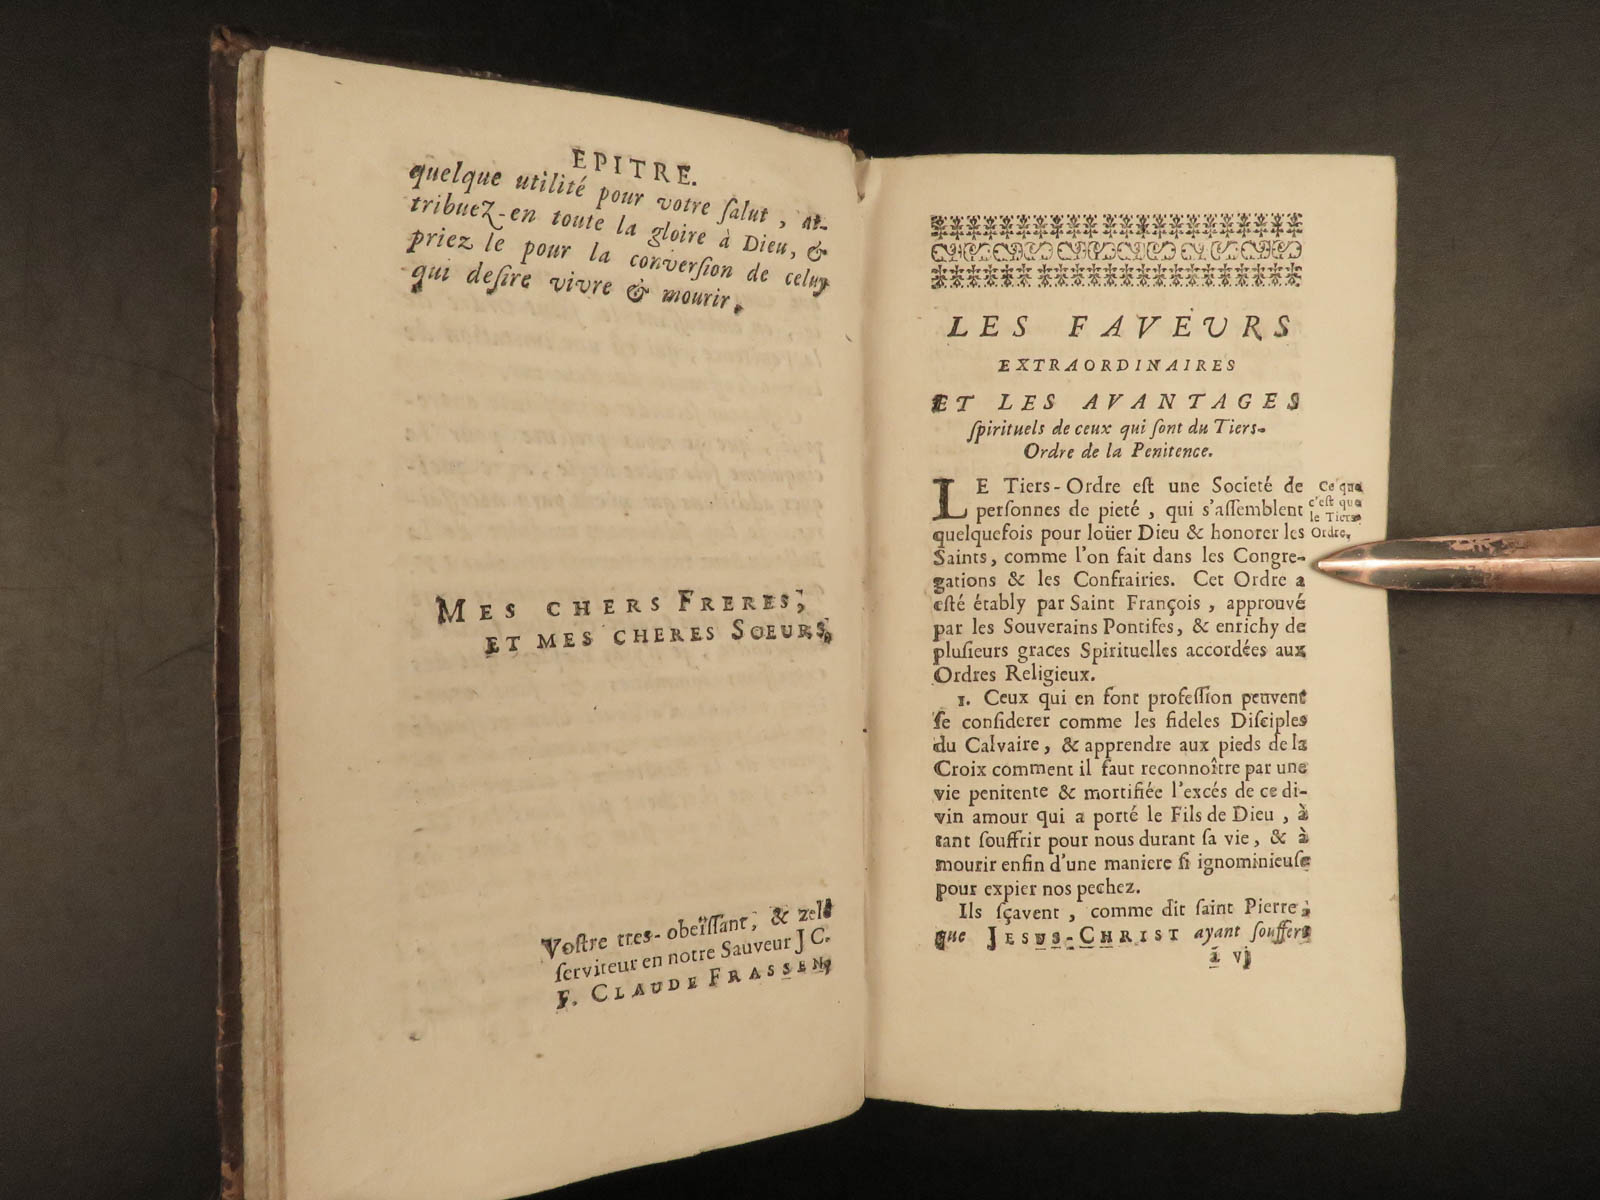 EPITRE.
quelque utilité pour votre ſalut, at-
tribuez-en toute la gloire à Dieu, &
priez le pour la converſion de celuy
qui deſire vivre & mourir,
MES CHERS FRERES,
ET MES CHERES SOEURS,
Voſtre tres-obeïſſant, & zelé
ſerviteur en notre Sauveur J C.
F. CLAUDE FRASSEN,
LES FAVEURS
EXTRAORDINAIRES
ET LES AVANTAGES
ſpirituels de ceux qui ſont du Tiers-
Ordre de la Penitence.
LE Tiers-Ordre eſt une Societé de
perſonnes de pieté, qui s'aſſemblent
quelquefois pour loüer Dieu & honorer les
Saints, comme l'on fait dans les Congre-
gations & les Confrairies. Cet Ordre a
eſté étably par Saint François, approuvé
par les Souverains Pontifes, & enrichy de
pluſieurs graces Spirituelles accordées aux
Ordres Religieux.
Ce que
c'eſt que
le Tiers-
Ordre,
1. Ceux qui en font profeſſion peuvent
ſe conſiderer comme les fideles Diſciples
du Calvaire, & apprendre aux pieds de la
Croix comment il faut reconnoître par une
vie penitente & mortifiée l'excés de ce di-
vin amour qui a porté le Fils de Dieu, à
tant ſouffrir pour nous durant ſa vie, & à
mourir enfin d'une maniere ſi ignominieuſe
pour expier nos pechez.
Ils ſçavent, comme dit ſaint Pierre,
que JESUS-CHRIST ayant ſouffert
ã vj